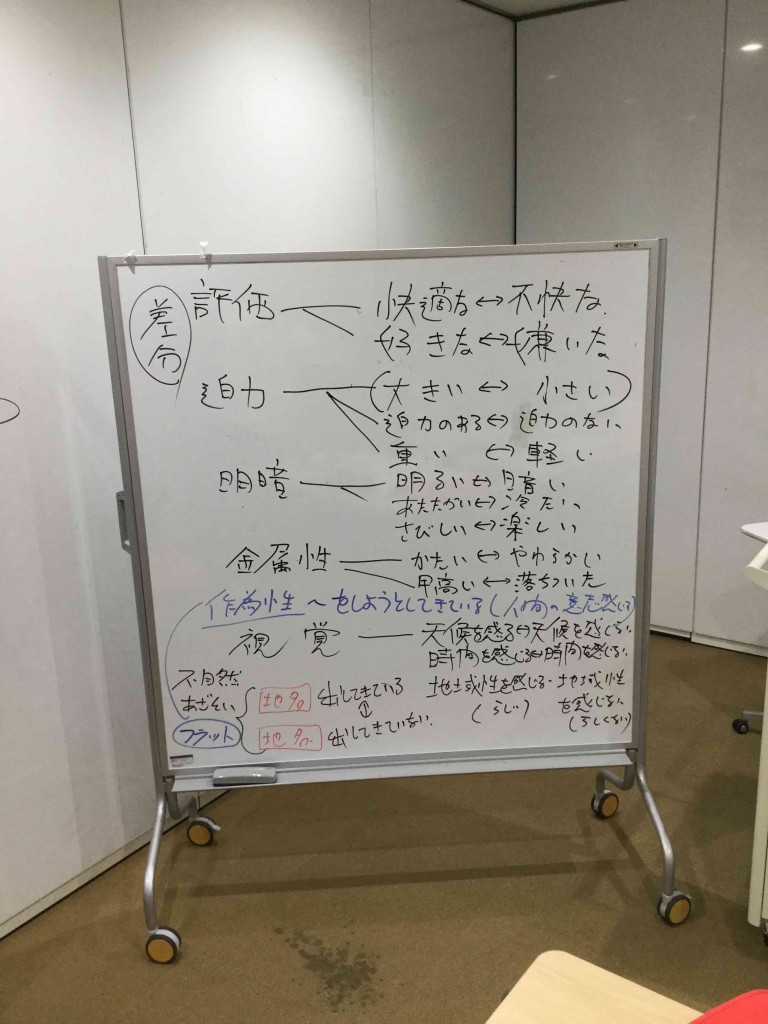 差分
評価 快適な↔不快な
好きな↔嫌いな
迫力 (大きい ↔ 小さい)
迫力のある↔迫力のない
重い ↔ 軽い
明暗 明るい↔暗い
あたたかい↔冷たい
さびしい↔楽しい
金属性 かたい↔やわらかい
甲高い↔落ちついた
作為性 〜をしようとしてきている(人間の意志感じる)
視覚 天候を感じる↔天候を感じない
時間を感じる↔時間を感じない
地域性を感じる・地域性
を感じない
(らしい) (らしくない)
不自然
あざとい
フラット
地名 出してきている
↕
地名 出してきていない